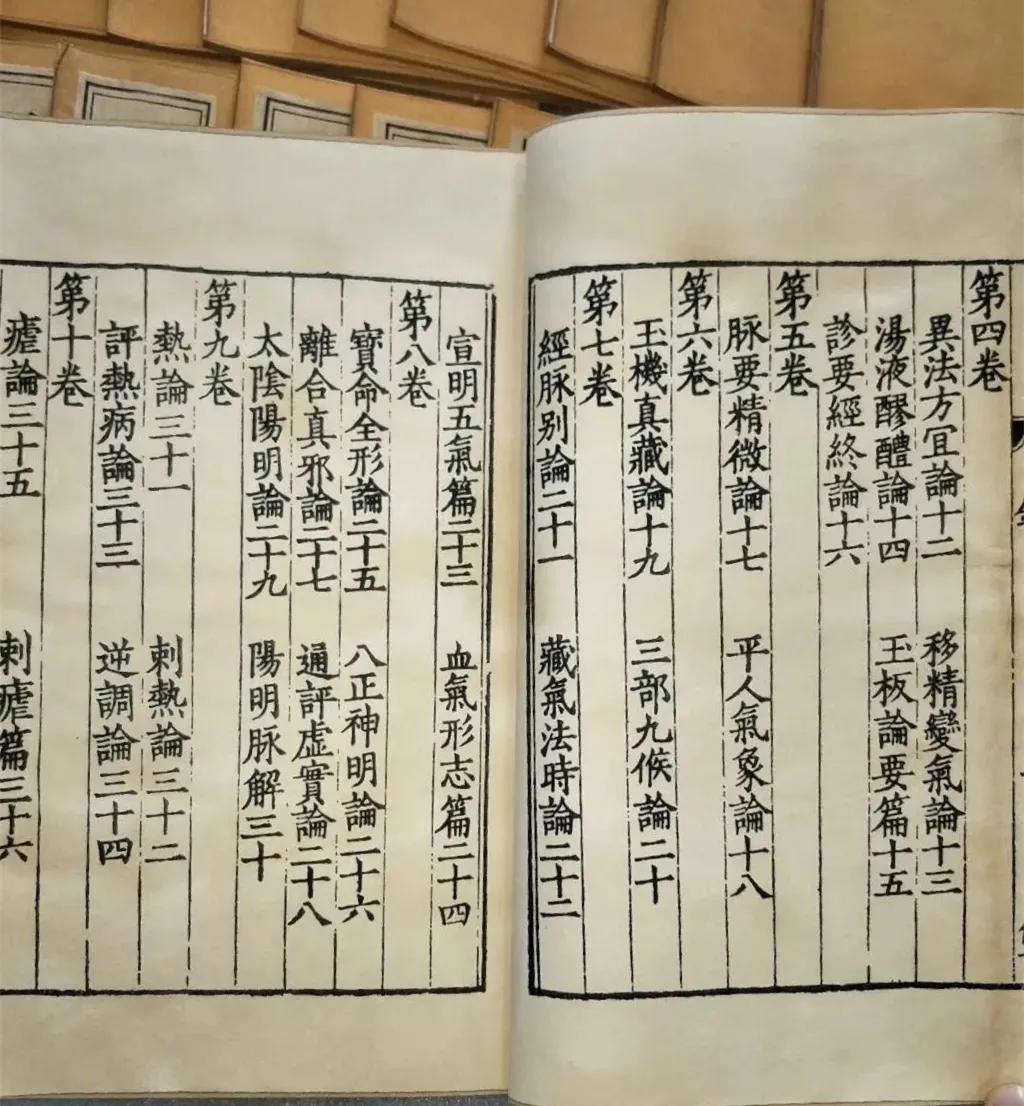 第四卷
異法方宜論十二　移精變氣論十三
湯液醪醴論十四　玉板論要篇十五
診要經終論十六
第五卷
脉要精微論十七　平人氣象論十八
第六卷
玉機真藏論十九　三部九候論二十
第七卷
經脉别論二十一　藏氣法時論二十二
宣明五氣篇二十三　血氣形志篇二十四
第八卷
寶命全形論二十五　八正神明論二十六
離合真邪論二十七　通評虚實論二十八
太陰陽明論二十九　陽明脉解三十
第九卷
熱論三十一　刺熱論三十二
評熱病論三十三　逆調論三十四
第十卷
瘧論三十五　刺瘧篇三十六